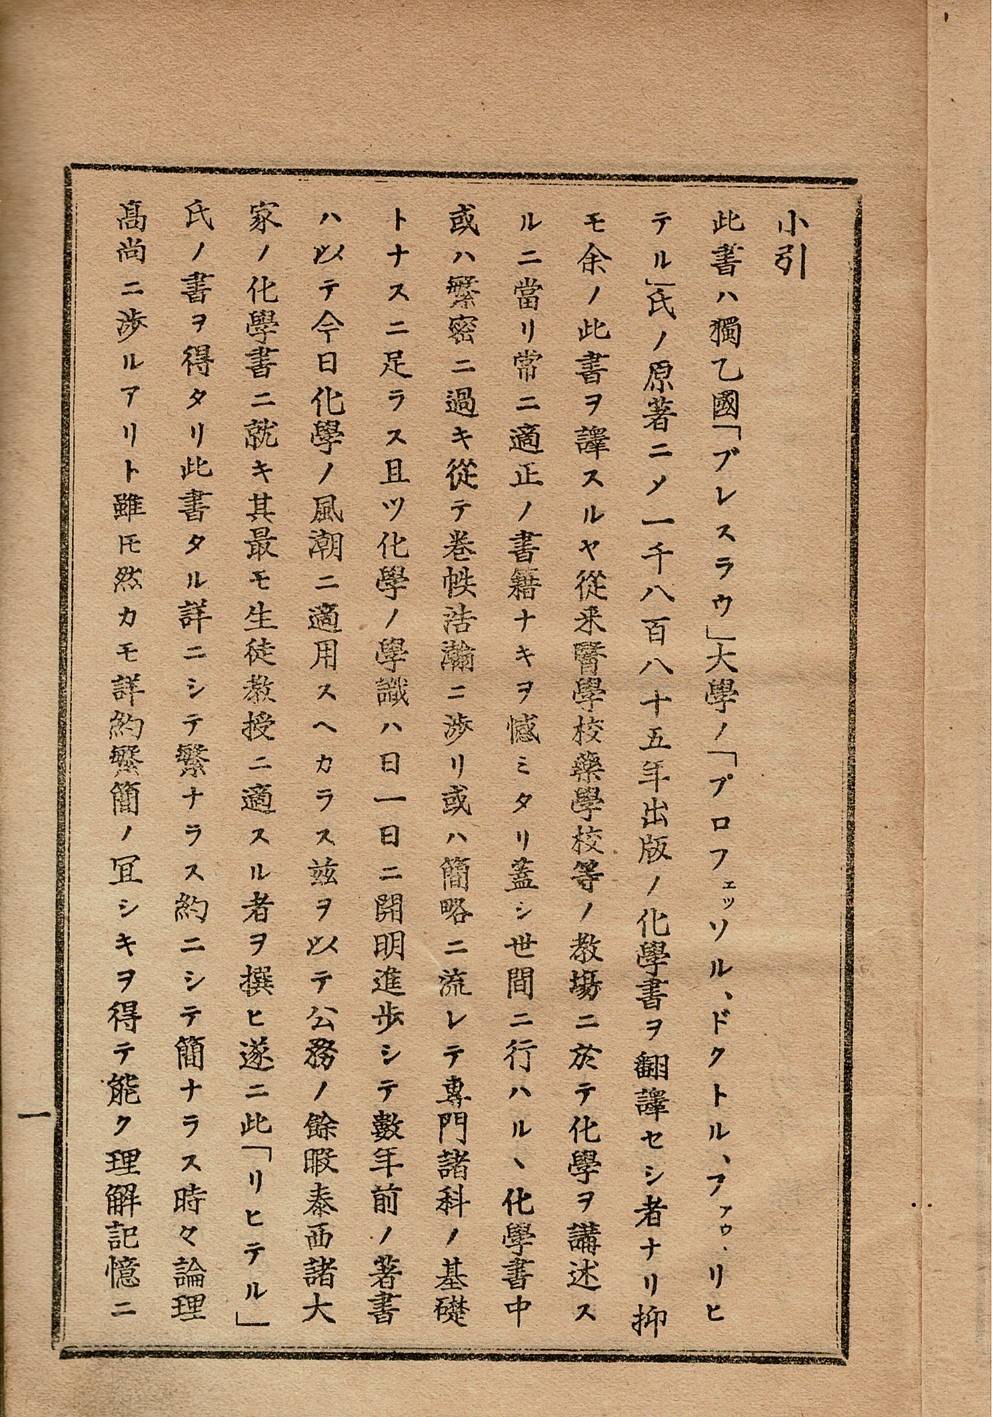 小引
此書ハ獨乙國「ブレスラウ」大學ノ「プロフェッソル、ドクトル、ファゥ、リヒ
テル」氏ノ原著ニ〆一千八百八十五年出版ノ化學書ヲ翻譯セシ者ナリ抑
モ余ノ此書ヲ譯スルヤ從来醫學校藥學校等ノ教塲ニ於テ化學ヲ講述ス
ルニ當リ常ニ適正ノ書籍ナキヲ憾ミタリ蓋シ世間ニ行ハルヽ化學書中
或ハ繁密ニ過キ從テ巻帙浩瀚ニ渉リ或ハ簡略ニ流レテ專門諸科ノ基礎
トナスニ足ラス且ツ化學ノ學識ハ日一日ニ開明進歩シテ數年前ノ著書
ハ以テ今日化學ノ風潮ニ適用スヘカラス茲ヲ以テ公務ノ餘暇泰西諸大
家ノ化學書ニ就キ其最モ生徒教授ニ適スル者ヲ撰ヒ遂ニ此「リヒテル」
氏ノ書ヲ得タリ此書タル詳ニシテ繁ナラス約ニシテ簡ナラス時々論理
髙尚ニ渉ルアリト雖𪜈然カモ詳約繁簡ノ冝シキヲ得テ能ク理解記憶ニ
一